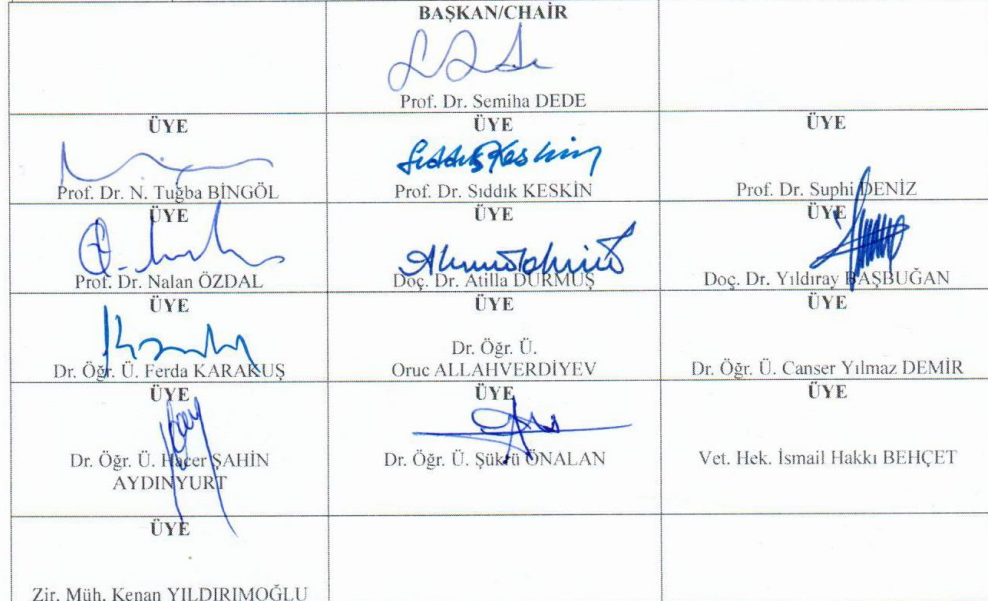 BAŞKAN/CHAİR
Prof. Dr. Semiha DEDE
ÜYE
ÜYE
ÜYE
Sıddık Keskin
Prof. Dr. N. Tuğba BİNGÖL
Prof. Dr. Sıddık KESKİN
Prof. Dr. Suphi DENİZ
ÜYE
ÜYE
ÜYE
Prof. Dr. Nalan ÖZDAL
Doç. Dr. Atilla DURMUŞ
Doç. Dr. Yıldıray BAŞBUĞAN
ÜYE
ÜYE
ÜYE
Dr. Öğr. Ü. Ferda KARAKUŞ
Dr. Öğr. Ü.
Oruc ALLAHVERDİYEV
Dr. Öğr. Ü. Canser Yılmaz DEMİR
ÜYE
ÜYE
ÜYE
Dr. Öğr. Ü. Hacer ŞAHİN
AYDINYURT
Dr. Öğr. Ü. Şükrü ÖNALAN
Vet. Hek. İsmail Hakkı BEHÇET
ÜYE
Zir. Müh. Kenan YILDIRIMOĞLU